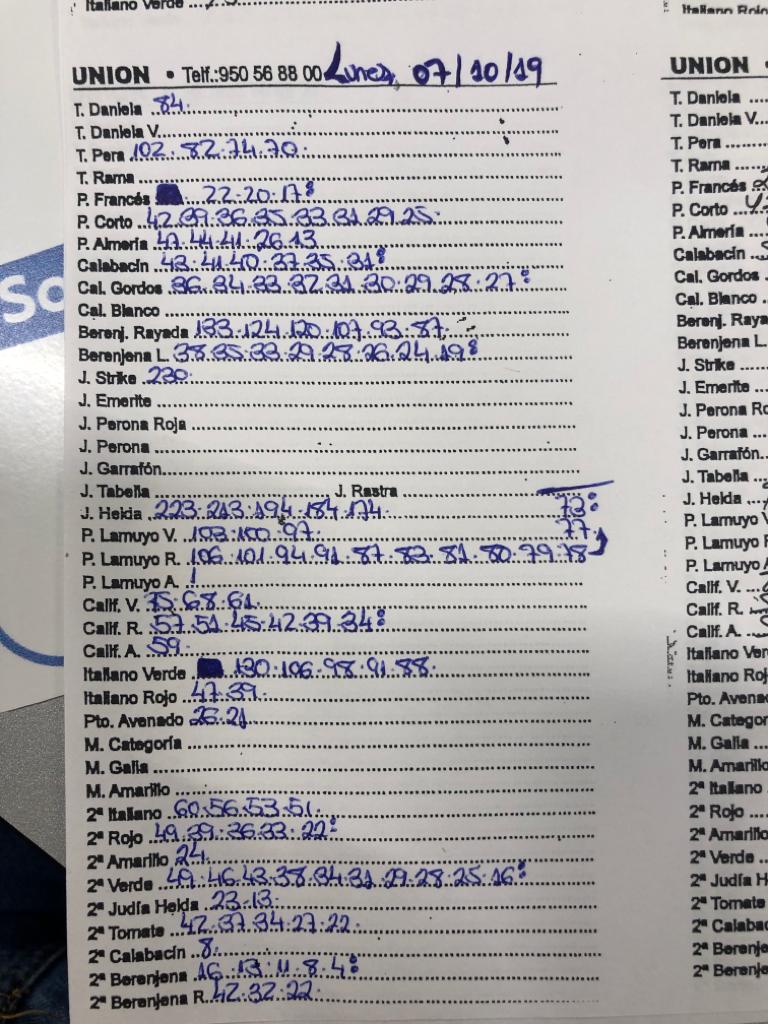 Italiano Verde
Italiano Rojo
UNION • Telf.: 950 56 88 00 Lunes, 07/10/19
T. Daniela 84.
T. Daniela V.
T. Pera 102.82.74.70.
T. Rama
P. Francés 22.20.17:
P. Corto 42.39.36.35.33.31.29.25.
P. Almería 47.44.41.26.13
Calabacín 43.41.40.37.35.31:
Cal. Gordos 36.34.33.32.31.30.29.28.27:
Cal. Blanco
Berenj. Rayada 133.124.120.107.93.87.
Berenjena L. 38.35.33.29.28.26.24.19:
J. Strike 230.
J. Emerite
J. Perona Roja
J. Perona
J. Garrafón
J. Tabella J. Rastra
J. Helda 223.213.194.184.174 73:
P. Lamuyo V. 103.100.97. 77.
P. Lamuyo R. 106.101.94.91.87.83.81.80.79.78
P. Lamuyo A.
Calif. V. 75.68.61.
Calif. R. 57.51.45.42.39.34:
Calif. A. 59.
Italiano Verde 130.106.98.91.88.
Italiano Rojo 47.39.
Pto. Avenado 26.21.
M. Categoría
M. Galia
M. Amarillo
2ª Italiano 60.56.53.51.
2ª Rojo 49.39.36.33.22:
2ª Amarillo 24.
2ª Verde 49.46.43.38.34.31.29.28.25.16:
2ª Judía Helda 23.13.
2ª Tomate 42.37.34.27.22.
2ª Calabacín 8.
2ª Berenjena 16.13.11.8.4:
2ª Berenjena R. 42.32.22.
UNION •
T. Daniela
T. Daniela V.
T. Pera
T. Rama
P. Francés
P. Corto
P. Almería
Calabacín
Cal. Gordos
Cal. Blanco
Berenj. Raya
Berenjena L.
J. Strike
J. Emerite
J. Perona Ro
J. Perona
J. Garrafón
J. Tabella
J. Helda
P. Lamuyo V
P. Lamuyo F
P. Lamuyo A
Calif. V.
Calif. R.
Calif. A.
Italiano Ver
Italiano Roj
Pto. Avena
M. Categor
M. Galia
M. Amarillo
2ª Italiano
2ª Rojo
2ª Amarillo
2ª Verde
2ª Judía H
2ª Tomate
2ª Calabac
2ª Berenje
2ª Berenje